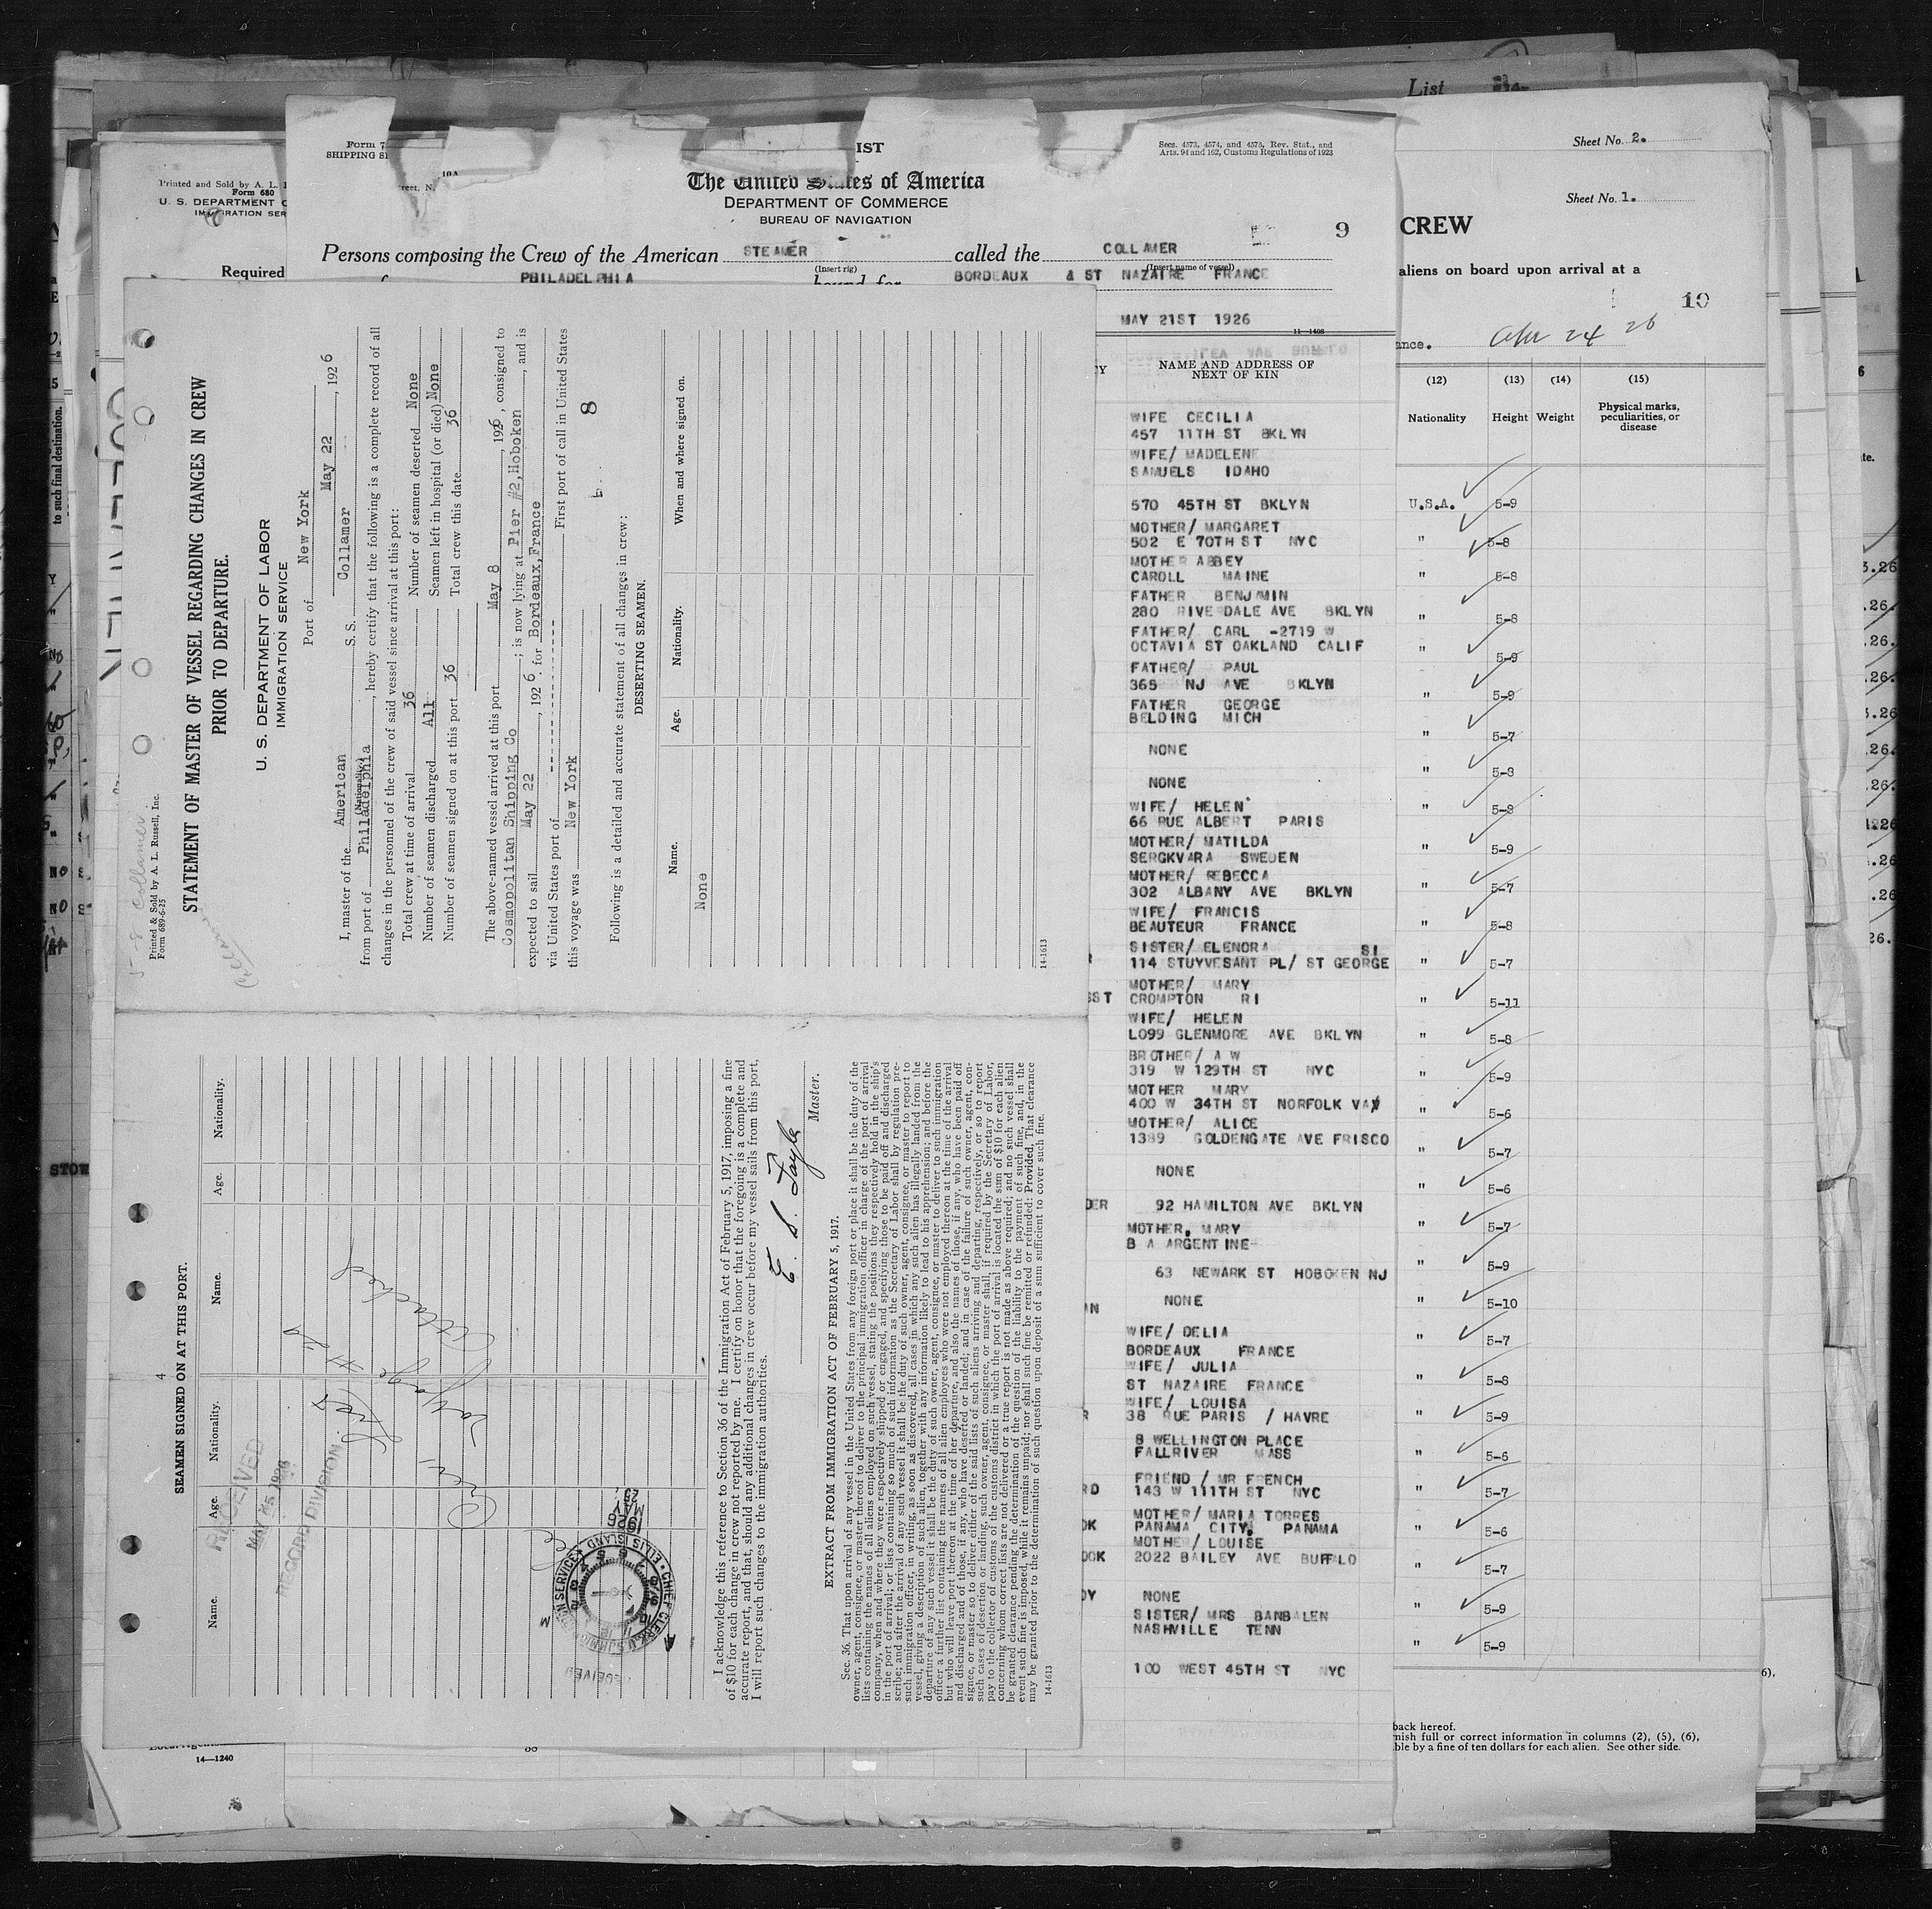 List
Sheet No. 2.
Sheet No. 1.
CREW
aliens on board upon arrival at a
10
ance.
Apr 24 26
(12)
(13)
(14)
(15)
Nationality
Height
Weight
Physical marks,
peculiarities, or
disease
U.S.A. 5-9
" 5-8
" 5-8
" 5-8
" 5-9
" 5-9
" 5-7
" 5-8
" 5-8
" 5-9
" 5-7
" 5-8
" 5-7
" 5-11
" 5-8
" 5-9
" 5-6
" 5-7
" 5-6
" 5-7
" 5-9
" 5-10
" 5-7
" 5-8
" 5-9
" 5-6
" 5-7
" 5-6
" 5-7
" 5-9
" 5-9
back hereof.
nish full or correct information in columns (2), (5), (6),
ble by a fine of ten dollars for each alien. See other side.
Printed and Sold by A. L.
Form 680
U. S. DEPARTMENT O
IMMIGRATION SER
Required
14—1240
Form 7
SHIPPING
IST
Secs. 4573, 4574, and 4575, Rev. Stat., and
Arts. 94 and 162, Customs Regulations of 1923
The United States of America
DEPARTMENT OF COMMERCE
BUREAU OF NAVIGATION
9
Persons composing the Crew of the American STEAMER called the COLLAMER
(Insert rig)
(Insert name of vessel)
PHILADELPHIA bound for BORDEAUX & ST NAZAIRE FRANCE
MAY 21ST 1926
11—1408
NAME AND ADDRESS OF
NEXT OF KIN
WIFE CECILIA
457 11TH ST BKLYN
WIFE/ MADELENE
SAMUELS IDAHO
570 45TH ST BKLYN
MOTHER/ MARGARET
502 E 70TH ST NYC
MOTHER ABBEY
CAROLL MAINE
FATHER BENJAMIN
280 RIVERDALE AVE BKLYN
FATHER/ CARL -2719 W
OCTAVIA ST OAKLAND CALIF
FATHER/ PAUL
365 NJ AVE BKLYN
FATHER GEORGE
BELDING MICH
NONE
NONE
WIFE/ HELEN
66 RUE ALBERT PARIS
MOTHER/ MATILDA
SERGKVARA SWEDEN
MOTHER/ REBECCA
302 ALBANY AVE BKLYN
WIFE/ FRANCIS
BEAUTEUR FRANCE
SISTER/ ELENORA SI
114 STUYVESANT PL/ ST GEORGE
MOTHER/ MARY
CROMPTON RI
WIFE/ HELEN
L099 GLENMORE AVE BKLYN
BROTHER/ A W
319 W 129TH ST NYC
MOTHER MARY
400 W 34TH ST NORFOLK VA
MOTHER/ ALICE
1389 GOLDENGATE AVE FRISCO
NONE
92 HAMILTON AVE BKLYN
MOTHER, MARY
B A ARGENTINE
63 NEWARK ST HOBOKEN NJ
NONE
WIFE/ DELIA
BORDEAUX FRANCE
WIFE/ JULIA
ST NAZAIRE FRANCE
WIFE/ LOUISA
38 RUE PARIS / HAVRE
8 WELLINGTON PLACE
FALLRIVER MASS
FRIEND / MR FRENCH
143 W 111TH ST NYC
MOTHER/ MARIA TORRES
PANAMA CITY, PANAMA
MOTHER/ LOUISE
2022 BAILEY AVE BUFFALO
NONE
SISTER/ MRS BANBALEN
NASHVILLE TENN
100 WEST 45TH ST NYC
5-8 Collamer
Printed & Sold by A. L. Russell, Inc.
Form 689-6-25
STATEMENT OF MASTER OF VESSEL REGARDING CHANGES IN CREW
PRIOR TO DEPARTURE.
U. S. DEPARTMENT OF LABOR
IMMIGRATION SERVICE
Port of New York
May 22, 1926
I, master of the American S. S. Collamer
(Nationality.)
from port of Philadelphia, hereby certify that the following is a complete record of all
changes in the personnel of the crew of said vessel since arrival at this port:
Total crew at time of arrival 36 Number of seamen deserted None
Number of seamen discharged All Seamen left in hospital (or died) None
Number of seamen signed on at this port 36 Total crew this date 36
The above-named vessel arrived at this port May 8, 1926, consigned to
Cosmopolitan Shipping Co; is now lying at Pier #2, Hoboken, and is
expected to sail May 22, 1926 for Bordeaux, France
via United States port of First port of call in United States
this voyage was New York
8
Following is a detailed and accurate statement of all changes in crew:
DESERTING SEAMEN.
Name. Age. Nationality. When and where signed on.
None
14-1613
4
SEAMEN SIGNED ON AT THIS PORT.
Name. Age. Nationality. Name. Age. Nationality.
RECEIVED
MAY 25 1926
RECORD DIVISION
Crew
Voyage
Attached
CHIEF CLERK, U.S. IMMIGRATION SERVICE
ELLIS ISLAND
1926
MAY
RECEIVED
I acknowledge this reference to Section 36 of the Immigration Act of February 5, 1917, imposing a fine
of $10 for each change in crew not reported by me. I certify on honor that the foregoing is a complete and
accurate report, and that, should any additional changes in crew occur before my vessel sails from this port,
I will report such changes to the immigration authorities.
E. S. Fayle
Master.
EXTRACT FROM IMMIGRATION ACT OF FEBRUARY 5, 1917.
Sec. 36. That upon arrival of any vessel in the United States from any foreign port or place it shall be the duty of the
owner, agent, consignee, or master thereof to deliver to the principal immigration officer in charge of the port of arrival
lists containing the names of all aliens employed on such vessel, stating the positions they respectively hold in the ship's
company, when and where they were respectively shipped or engaged, and specifying those to be paid off and discharged
in the port of arrival; or lists containing so much of such information as the Secretary of Labor shall by regulation pre-
scribe; and after the arrival of any such vessel it shall be the duty of such owner, agent, consignee, or master to report to
such immigration officer, in writing, as soon as discovered, all cases in which any such alien has illegally landed from the
vessel, giving a description of such alien, together with any information likely to lead to his apprehension; and before the
departure of any such vessel it shall be the duty of such owner, agent, consignee, or master to deliver to such immigration
officer a further list containing the names of all alien employees who were not employed thereon at the time of the arrival
but who will leave port thereon at the time of her departure, and also the names of those, if any, who have been paid off
and discharged and of those, if any, who have deserted or landed; and in case of the failure of such owner, agent, con-
signee, or master so to deliver either of the said lists of such aliens arriving and departing, respectively, or so to report
such cases of desertion or landing, such owner, agent, consignee, or master shall, if required by the Secretary of Labor,
pay to the collector of customs of the customs district in which the port of arrival is located the sum of $10 for each alien
concerning whom correct lists are not delivered or a true report is not made as above required; and no such vessel shall
be granted clearance pending the determination of the question of the liability to the payment of such fine, and, in the
event such fine is imposed, while it remains unpaid; nor shall such fine be remitted or refunded: Provided, That clearance
may be granted prior to the determination of such question upon deposit of a sum sufficient to cover such fine.
14-1613
to such final destination.
STOW